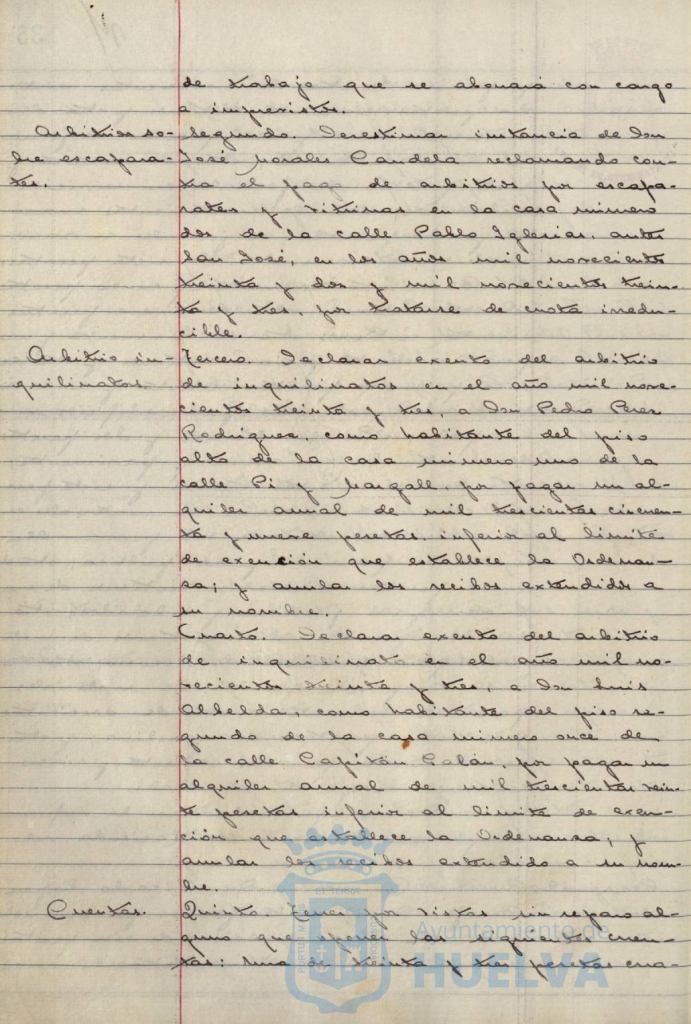 de trabajo que se abonará con cargo
a imprevistos.
Arbitrios so- Segundo. Desestimar instancia de Don
bre escapara- José Morales Candela reclamando con-
tes. tra el pago de arbitrios por escapa-
rates y vitrinas en la casa número
dos de la calle Pablo Iglesias, antes
San José, en los años mil novecientos
treinta y dos y mil novecientos trein-
ta y tres, por tratarse de cuota irredu-
cible.
Arbitrio in- Tercero. Declarar exento del arbitrio
quilinatos. de inquilinatos en el año mil nove-
cientos treinta y tres, a Don Pedro Perez
Rodríguez, como habitante del piso
alto de la casa número uno de la
calle Pi y Margall, por pagar un al-
quiler anual de mil trescientas cincuen-
ta y nueve pesetas, inferior al límite
de exención que establece la Ordenan-
za; y anular los recibos extendidos a
su nombre.
Cuarto. Declarar exento del arbitrio
de inquilinato en el año mil no-
vecientos treinta y tres, a Don Luis
Albelda, como habitante del piso se-
gundo de la casa número once de
la calle Capitán Galán, por pagar un
alquiler anual de mil trescientas vein-
te pesetas inferior al límite de exen-
ción que establece la Ordenanza, y
anular los recibos extendido a su nom-
bre.
Cuentas. Quinto. Tener por vistas sin reparo al-
guno que oponer las siguientes cuen-
tas: Una de treinta y tres pesetas cua-
Ayuntamiento de
HUELVA